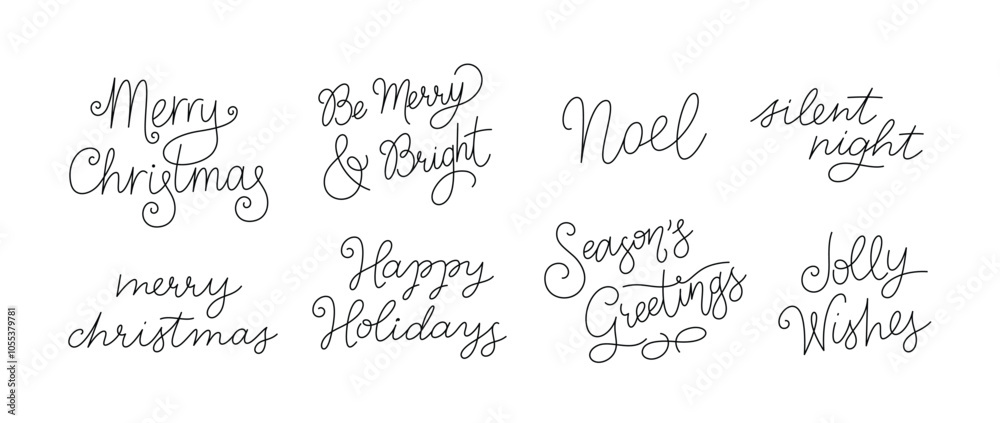 Merry
Christmas
Be Merry
& Bright
Noel
silent
night
merry
christmas
Happy
Holidays
Season's
Greetings
Jolly
Wishes
Adobe Stock | #1055379781